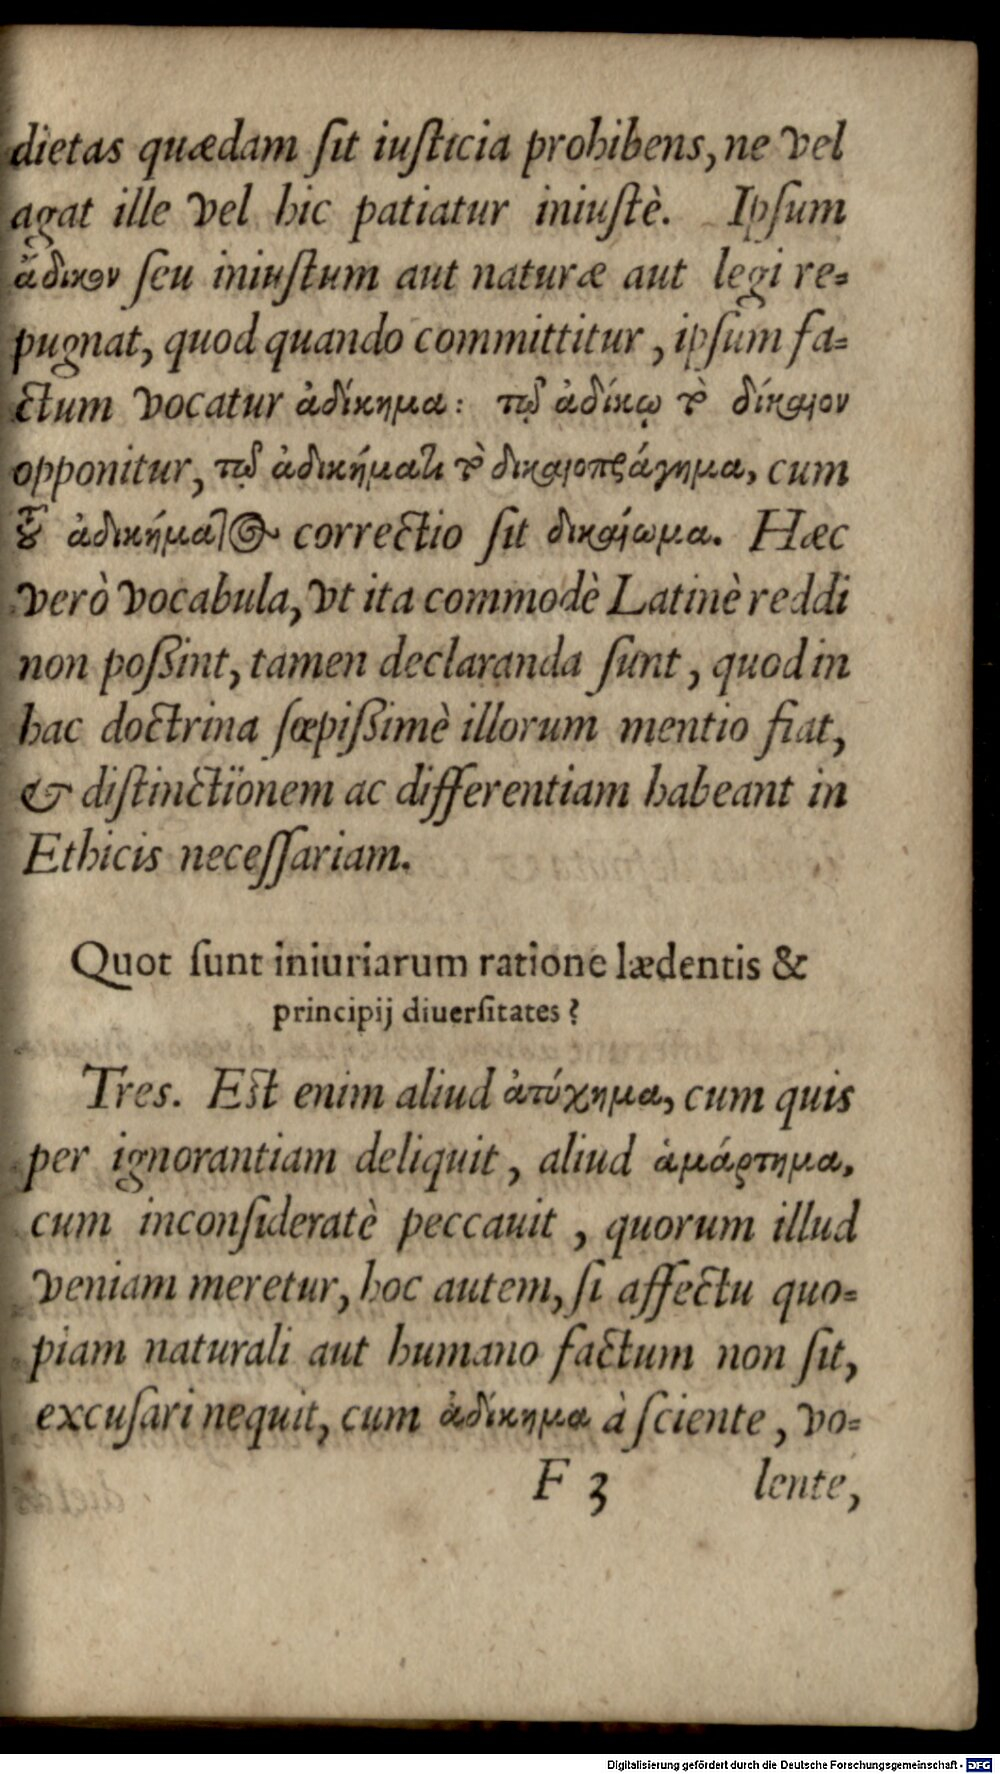 dietas quædam ſit iuſticia prohibens, ne vel
agat ille vel hic patiatur iniuſtè. Ipſum
ἄδικον ſeu iniuſtum aut naturæ aut legi re-
pugnat, quod quando committitur, ipſum fa-
ctum vocatur ἀδίκημα: τῷ ἀδίκῳ τὸ δίκαιον
opponitur, τῷ ἀδικήματι τὸ δικαιοπράγημα, cum
τοῦ ἀδικήματος correctio ſit δικαίωμα. Hæc
verò vocabula, vt ita commodè Latinè reddi
non poßint, tamen declaranda ſunt, quod in
hac doctrina ſæpißimè illorum mentio fiat,
& diſtinctionem ac differentiam habeant in
Ethicis neceſſariam.
Quot ſunt iniuriarum ratione lædentis &
principij diuerſitates?
Tres. Eſt enim aliud ἀτύχημα, cum quis
per ignorantiam deliquit, aliud ἁμάρτημα,
cum inconſideratè peccauit, quorum illud
veniam meretur, hoc autem, ſi affectu quo-
piam naturali aut humano factum non ſit,
excuſari nequit, cum ἀδίκημα à ſciente, vo-
F 3 lente,
Digitalisierung gefördert durch die Deutsche Forschungsgemeinschaft - DFG